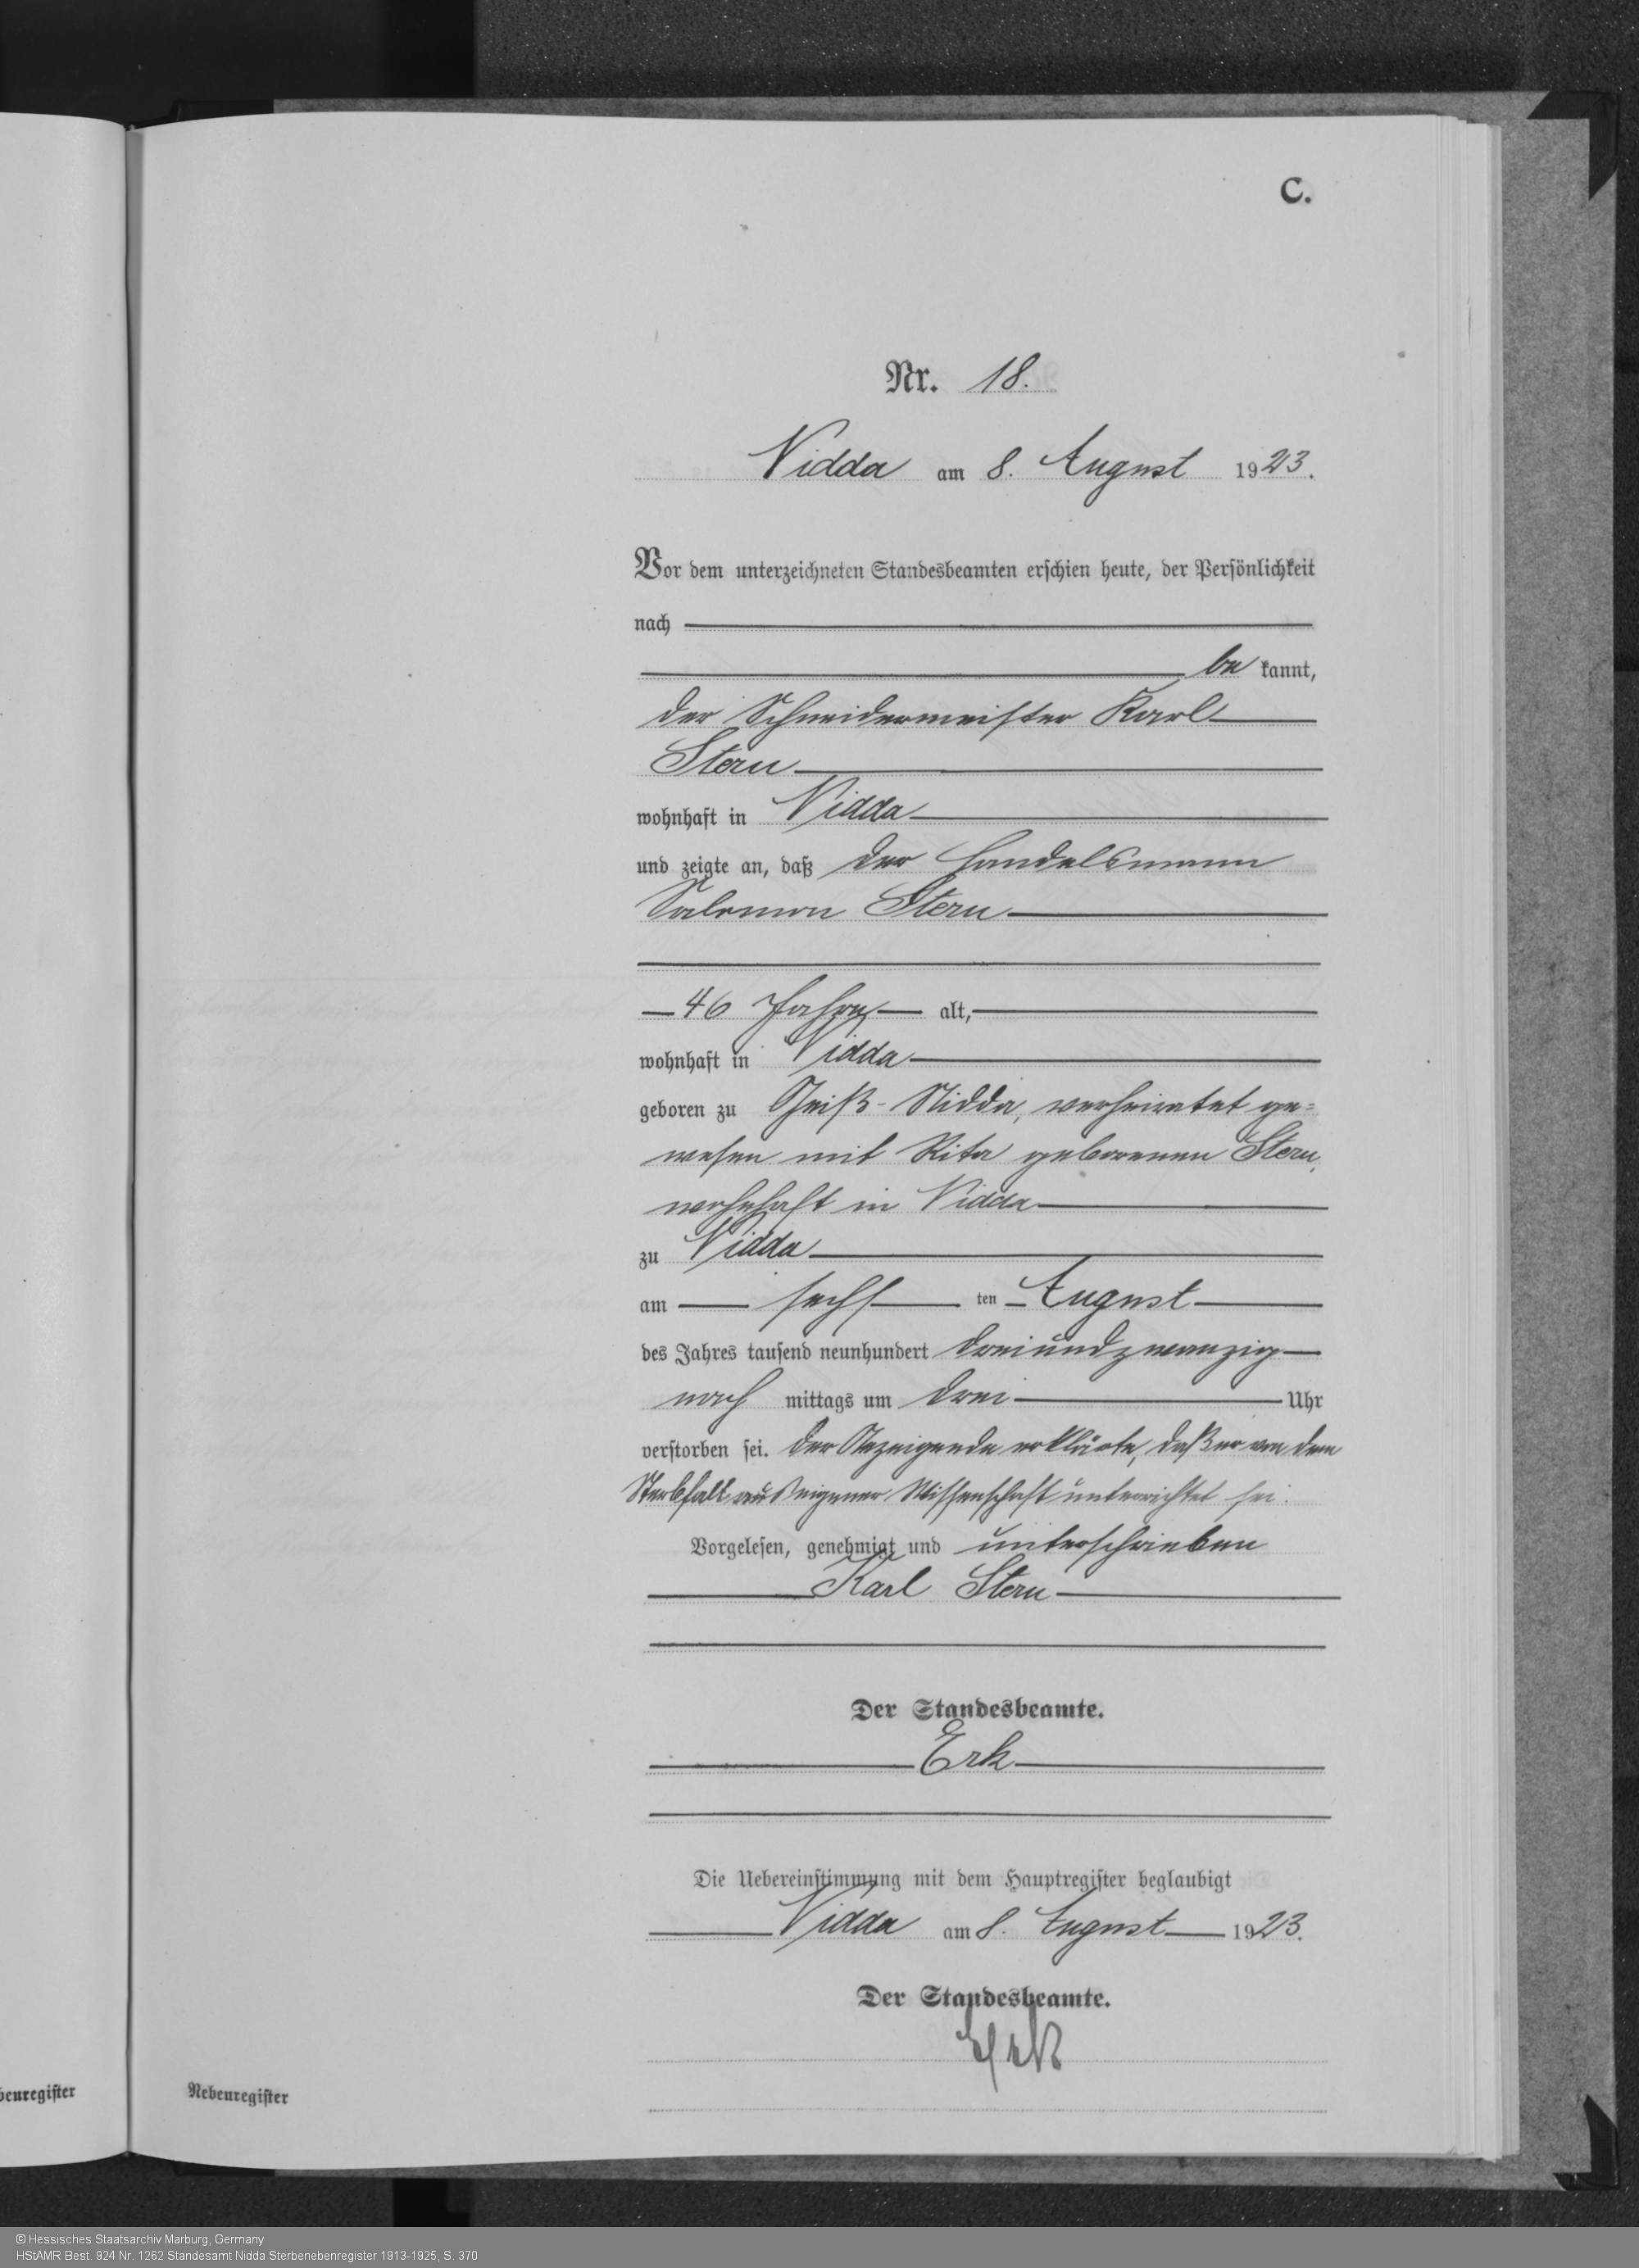 C.
Nr. 18.
Nidda am 8. August 1923.
Vor dem unterzeichneten Standesbeamten erschien heute, der Persönlichkeit
nach
be kannt,
der Schneidermeister Karl
Stern
wohnhaft in Nidda
und zeigte an, daß der Handelsmann
Salomon Stern
46 Jahre alt,
wohnhaft in Nidda
geboren zu Geiß-Nidda, verheiratet ge=
wesen mit Rita geborenen Stern,
wohnhaft in Nidda
zu Nidda
am sechs ten August
des Jahres tausend neunhundert dreiundzwanzig
nach mittags um drei Uhr
verstorben sei. Der Anzeigende erklärte, daß er von dem
Sterbfall aus eigener Wissenschaft unterrichtet sei.
Vorgelesen, genehmigt und unterschrieben
Karl Stern
Der Standesbeamte.
Erk
Die Uebereinstimmung mit dem Hauptregister beglaubigt
Nidda am 8. August 1923.
Der Standesbeamte.
Erk
benregister
Nebenregister
© Hessisches Staatsarchiv Marburg, Germany
HStAMR Best. 924 Nr. 1262 Standesamt Nidda Sterbenebenregister 1913-1925, S. 370